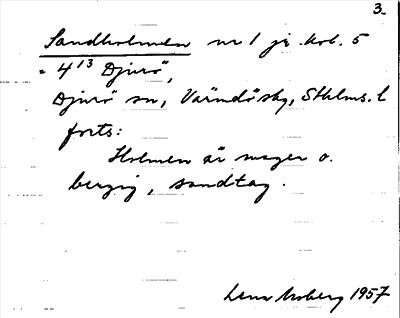 3.
Sandholmen nr 1 je. kob. 5
= 4¹³ Djurö,
Djurö sn, Värmdö skg, Sthlms. l
forts:
Holmen är mager o.
bergig, sandtag.
Lena Moberg 1957